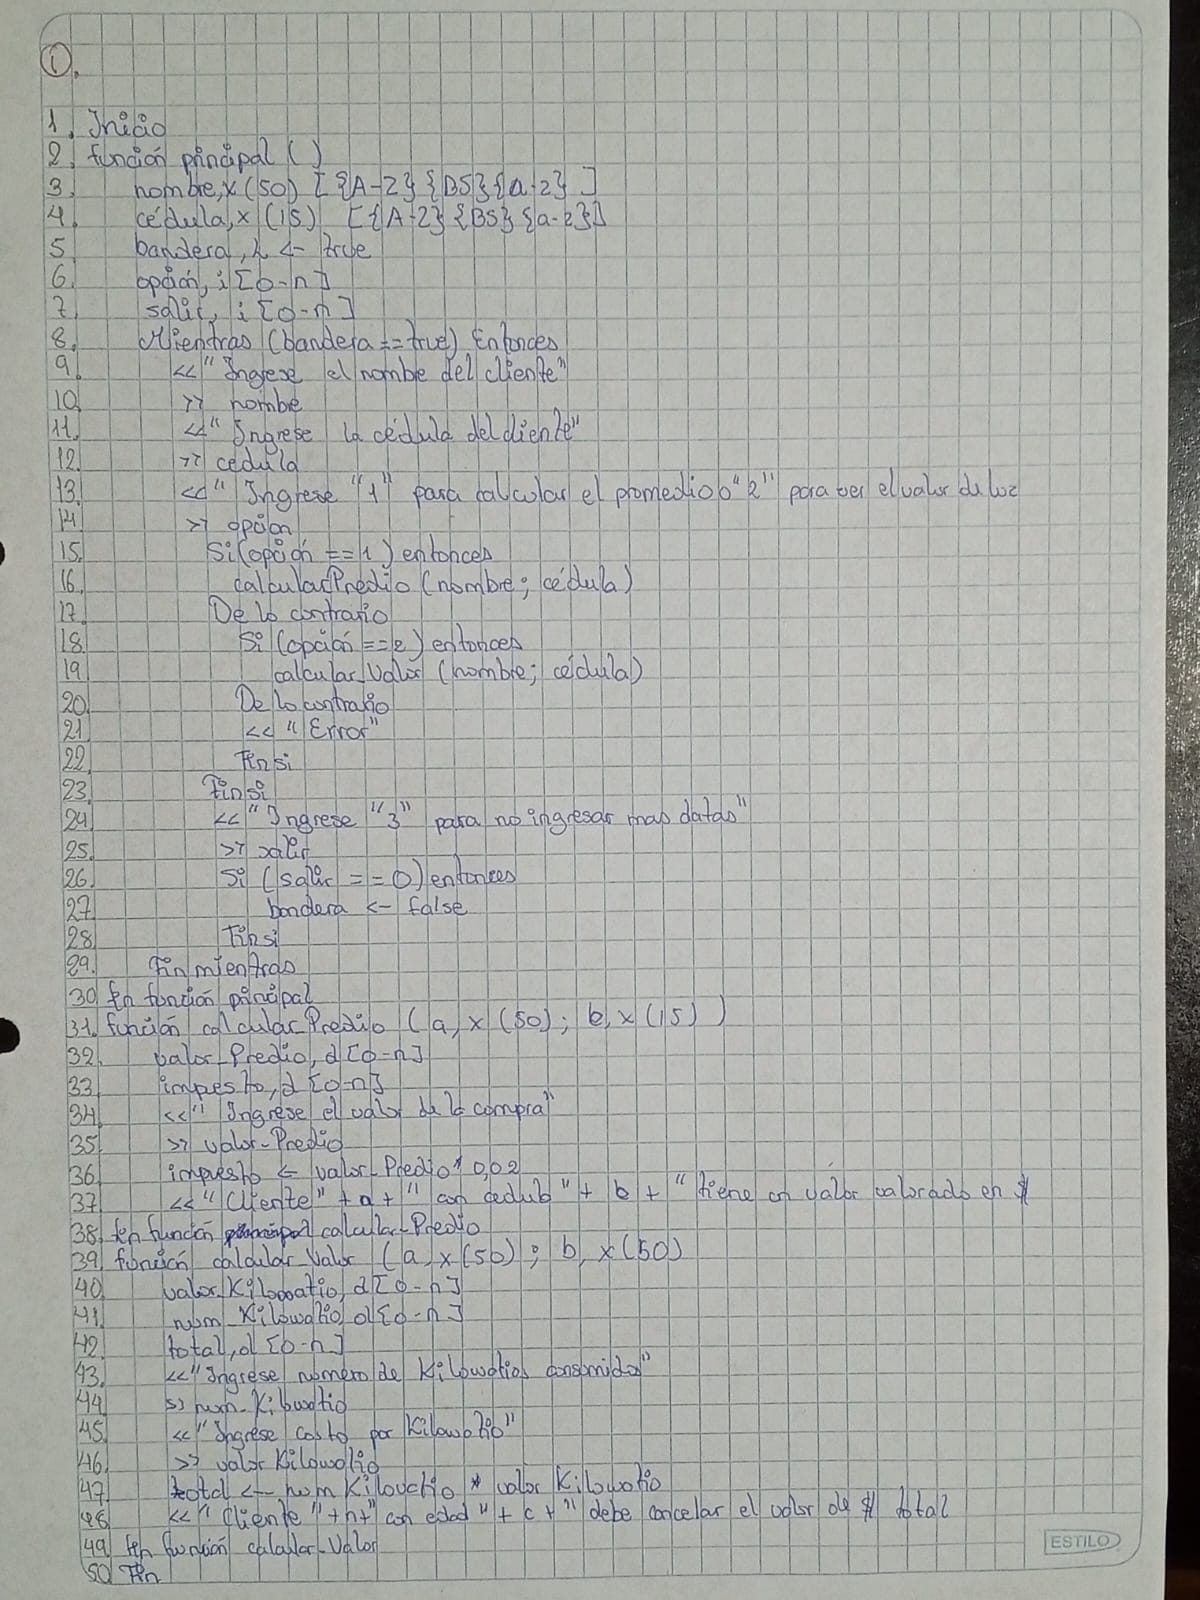 1.
1. Inicio
2. función principal ( )
3. nombre, x (50) [{A-Z} {BS} {a-z} ]
4. cédula, x (15) [{A-Z} {BS} {a-z}]
5 bandera, l <- true
6. opción, i [0-n]
7. salir, i [0-n]
8. Mientras (bandera == true) Entonces
9. << "Ingrese el nombre del cliente"
10. >> nombre
11. << "Ingrese la cédula del cliente"
12. >> cedula
13. << "Ingrese "1" para calcular el promedio o "2" para ver el valor de luz
14 >> opcion
15. Si (opción == 1) entonces
16. calcular_Predio (nombre; cédula)
17. De lo contrario
18. Si (opción == 2) entonces
19 calcular_Valor (nombre; cédula)
20. De lo contrario
21 << "Error"
22. Finsi
23. Finsi
24 << "Ingrese "3" para no ingresar mas datos"
25. >> salir
26. Si (salir == 0) entonces
27. bandera <- false
28 Finsi
29. Finmientras
30 fin función principal
31. función calcular_Predio (a, x (50); b, x (15) )
32. valor_Predio, d [0-n]
33. impuesto, d [0-n]
34. << "Ingrese el valor de la compra"
35. >> valor_Predio
36. impuesto <- valor_Predio * 0,02
37 << "Cliente" + a + " con cedula" + b + "tiene un valor valorado en $
38. fin función calcular_Predio
39. función calcular_Valor (a, x (50); b, x (50)
40. valor_Kilowatio, d [0-n]
41. num_Kilowatio, d [0-n]
42. total, d [0-n]
43. << "Ingrese número de Kilowatios consumidos"
44. >> num_Kilowatio
45. << "Ingrese costo por Kilowatio"
46. >> valor Kilowatio
47. total <- num Kilowatio * valor Kilowatio
48. << "Cliente "+n+" con edad "+ c +" debe cancelar el valor de $ total
49 fin función calcular_Valor
50 Fin
ESTILO